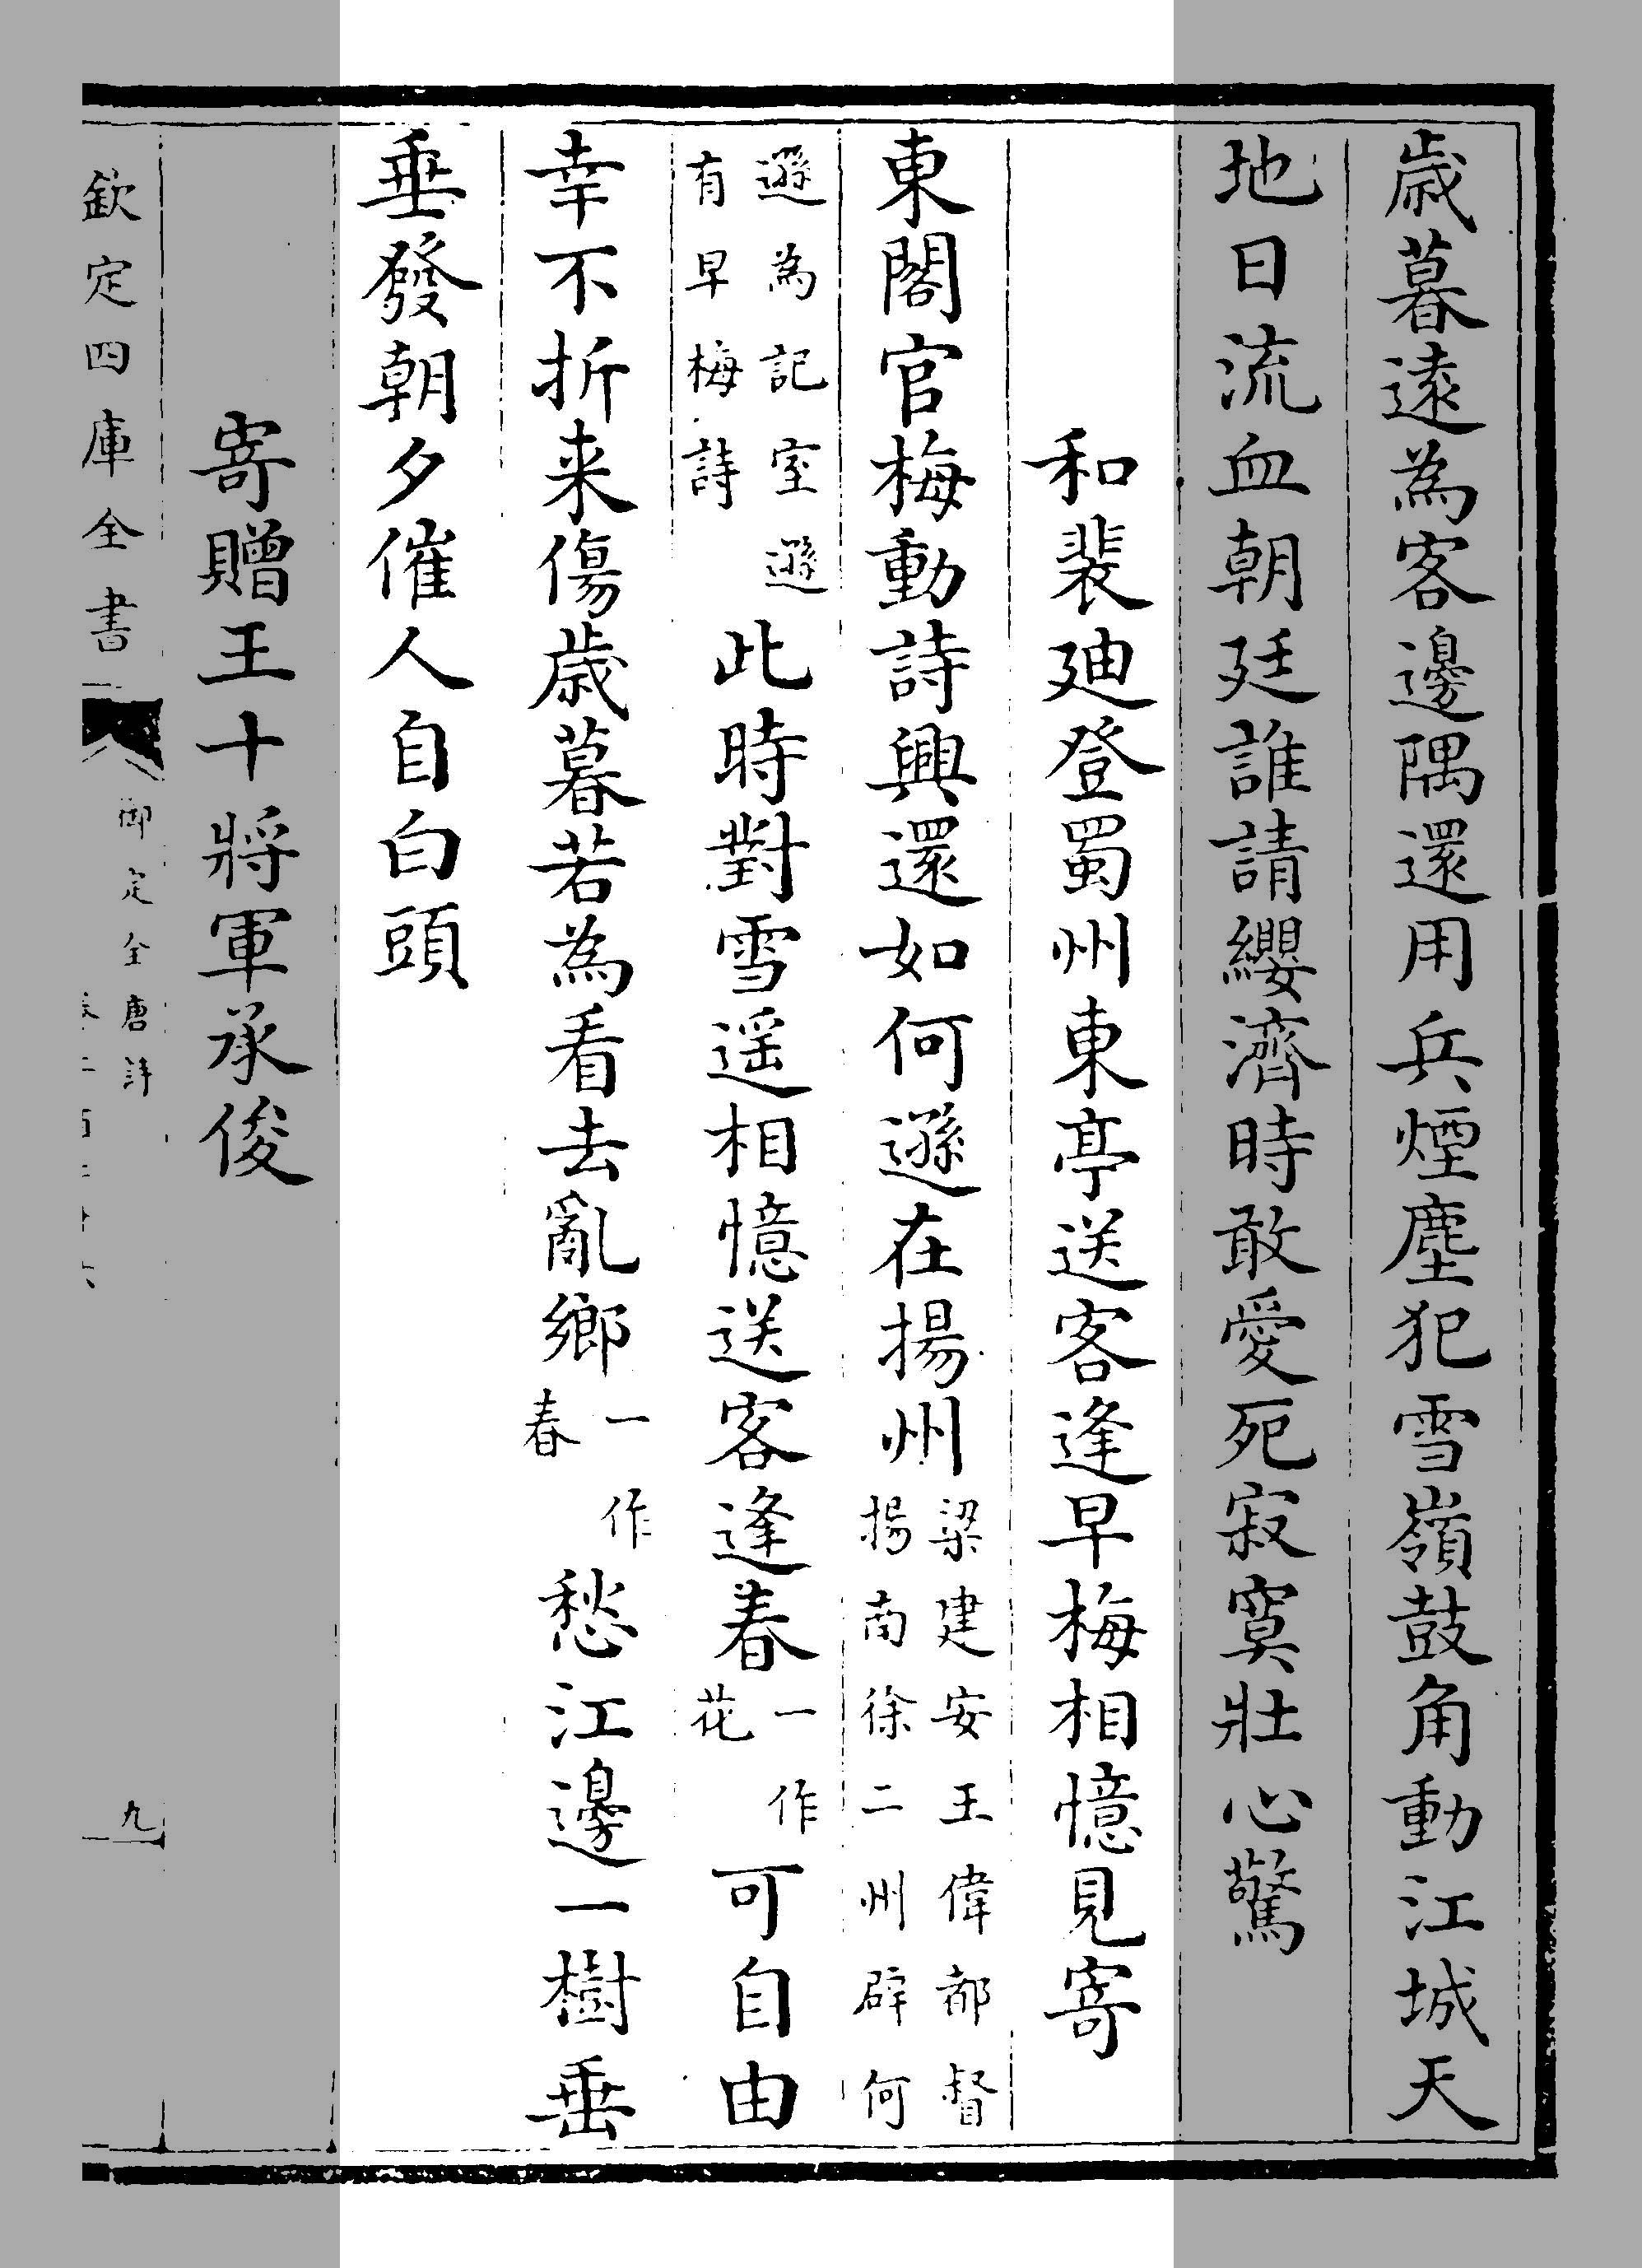 歲暮遠為客邊隅還用兵煙塵犯雪嶺鼓角動江城天
地日流血朝廷誰請纓濟時敢愛死寂寞壯心驚
和裴廸登蜀州東亭送客逢早梅相憶見寄
東閣官梅動詩興還如何遜在揚州梁建安王偉都督揚南徐二州辟何
遜為記室遜有早梅詩此時對雪遥相憶送客逢春一作花可自由
幸不折来傷歲暮若為看去亂鄉一作春愁江邊一樹垂
垂發朝夕催人自白頭
寄贈王十將軍承俊
欽定四庫全書
御定全唐詩
九